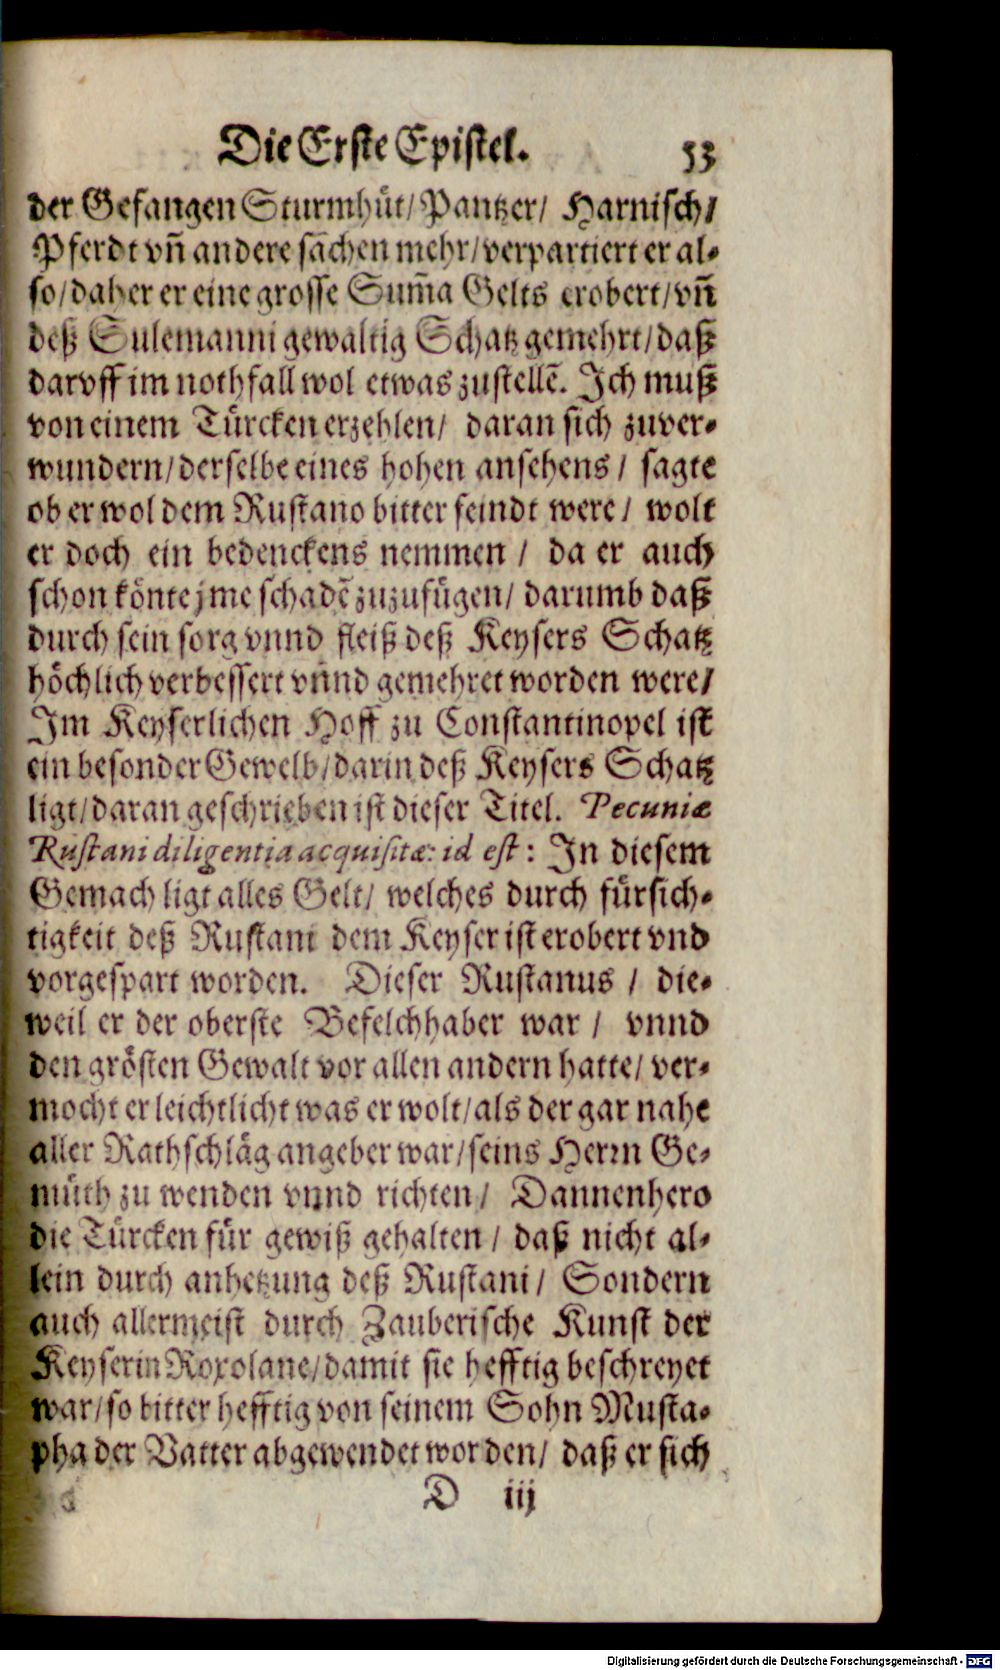 Die Erste Epistel. 53
der Gefangen Sturmhüt/ Pantzer/ Harnisch/
Pferdt vn̄ andere sachen mehr/ verpartiert er al-
so/ daher er eine grosse Sum̄a Gelts erobert/ vn̄
deß Sulemanni gewaltig Schatz gemehrt/ daß
darvff im nothfall wol etwas zustellē. Ich muß
von einem Türcken erzehlen/ daran sich zuver-
wundern/ derselbe eines hohen ansehens/ sagte
ob er wol dem Rustano bitter feindt were/ wolt
er doch ein bedenckens nemmen/ da er auch
schon könte jme schadē zuzufügen/ darumb daß
durch sein sorg vnnd fleiß deß Keysers Schatz
höchlich verbessert vnnd gemehret worden were/
Im Keyserlichen Hoff zu Constantinopel ist
ein besonder Gewelb/ darin deß Keysers Schatz
ligt/ daran geschrieben ist dieser Titel. Pecuniæ
Rustani diligentia acquisitæ: id est: In diesem
Gemach ligt alles Gelt/ welches durch fürsich-
tigkeit deß Rustani dem Keyser ist erobert vnd
vorgespart worden. Dieser Rustanus/ die-
weil er der oberste Befelchhaber war/ vnnd
den grösten Gewalt vor allen andern hatte/ ver-
mocht er leichtlicht was er wolt/ als der gar nahe
aller Rathschläg angeber war/ seins Herrn Ge-
müth zu wenden vnnd richten/ Dannenhero
die Türcken für gewiß gehalten/ daß nicht al-
lein durch anhetzung deß Rustani/ Sondern
auch allermeist durch Zauberische Kunst der
Keyserin Roxolane/ damit sie hefftig beschreyet
war/ so bitter hefftig von seinem Sohn Musta-
pha der Vatter abgewendet worden/ daß er sich
D iij
Digitalisierung gefördert durch die Deutsche Forschungsgemeinschaft - DFG